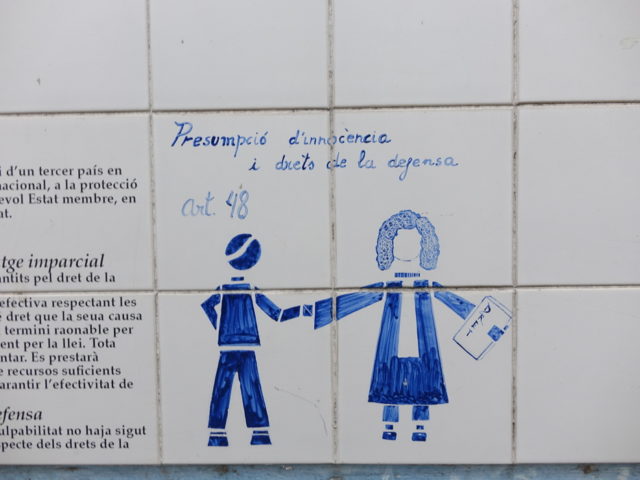 i d'un tercer país en
nacional, a la protecció
evol Estat membre, en
at.
tge imparcial
antits pel dret de la
efectiva respectant les
dret que la seua causa
termini raonable per
ent per la llei. Tota
ntar. Es prestarà
e recursos suficients
arantir l'efectivitat de
efensa
ulpabilitat no haja sigut
specte dels drets de la
Presumpció d'innocència
i drets de la defensa
art. 48